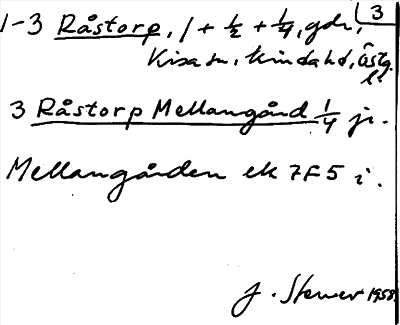 3
1-3 Råstorp, 1 + 1/2 + 1/4, gdr,
Kisa sn, Kinda hd, Östg.
l.
3 Råstorp Mellangård 1/4 je.
Mellangården ek 7F5 i.
J. 1958